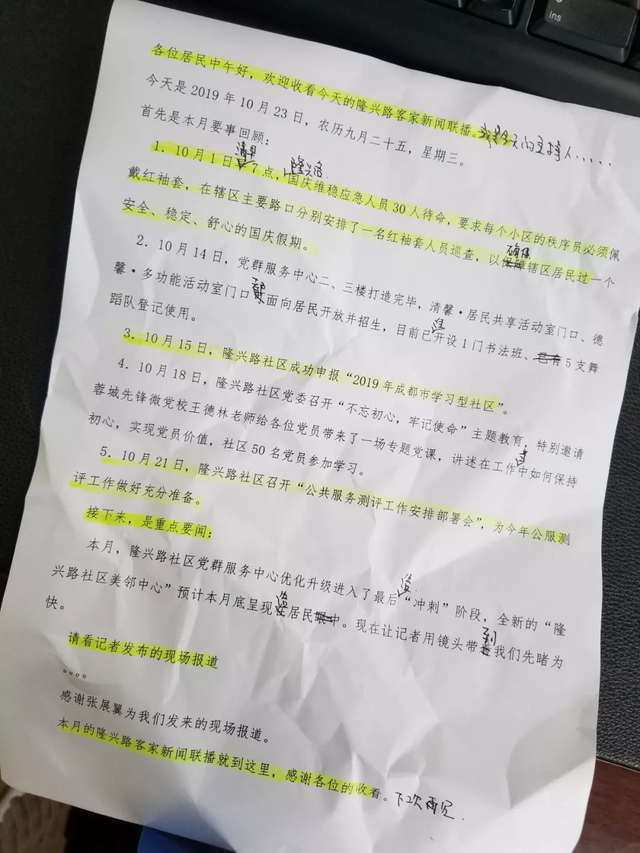 各位居民中午好，欢迎收看今天的隆兴路客家新闻联播。我是今天的主持人.....
今天是 2019 年 10 月 23 日，农历九月二十五，星期三。
首先是本月要事回顾：
1. 10 月 1 日 7 点，隆兴路国庆维稳应急人员 30 人待命，要求每个小区的秩序员必须佩
戴红袖套，在辖区主要路口分别安排了一名红袖套人员巡查，以确保辖区居民过一个
安全、稳定、舒心的国庆假期。
2. 10 月 14 日，党群服务中心二、三楼打造完毕，清馨·居民共享活动室门口、德
馨·多功能活动室门口面向居民开放并招生，目前已开设 1 门书法班、5 支舞
蹈队登记使用。
3. 10 月 15 日，隆兴路社区成功申报“2019 年成都市学习型社区”。
4. 10 月 18 日，隆兴路社区党委召开“不忘初心，牢记使命”主题教育，特别邀请
蓉城先锋微党校王德林老师给各位党员带来了一场专题党课，讲述在工作中如何保持
初心，实现党员价值，社区 50 名党员参加学习。
5. 10 月 21 日，隆兴路社区召开“公共服务测评工作安排部署会”，为今年公服测
评工作做好充分准备。
接下来，是重点要闻：
本月，隆兴路社区党群服务中心优化升级进入了最后“冲刺”阶段，全新的“隆
兴路社区美邻中心”预计本月底呈现居民。现在让记者用镜头带到我们先睹为
快。
请看记者发布的现场报道
。。。。
感谢张展翼为我们发来的现场报道。
本月的隆兴路客家新闻联播就到这里，感谢各位的收看。下次再见